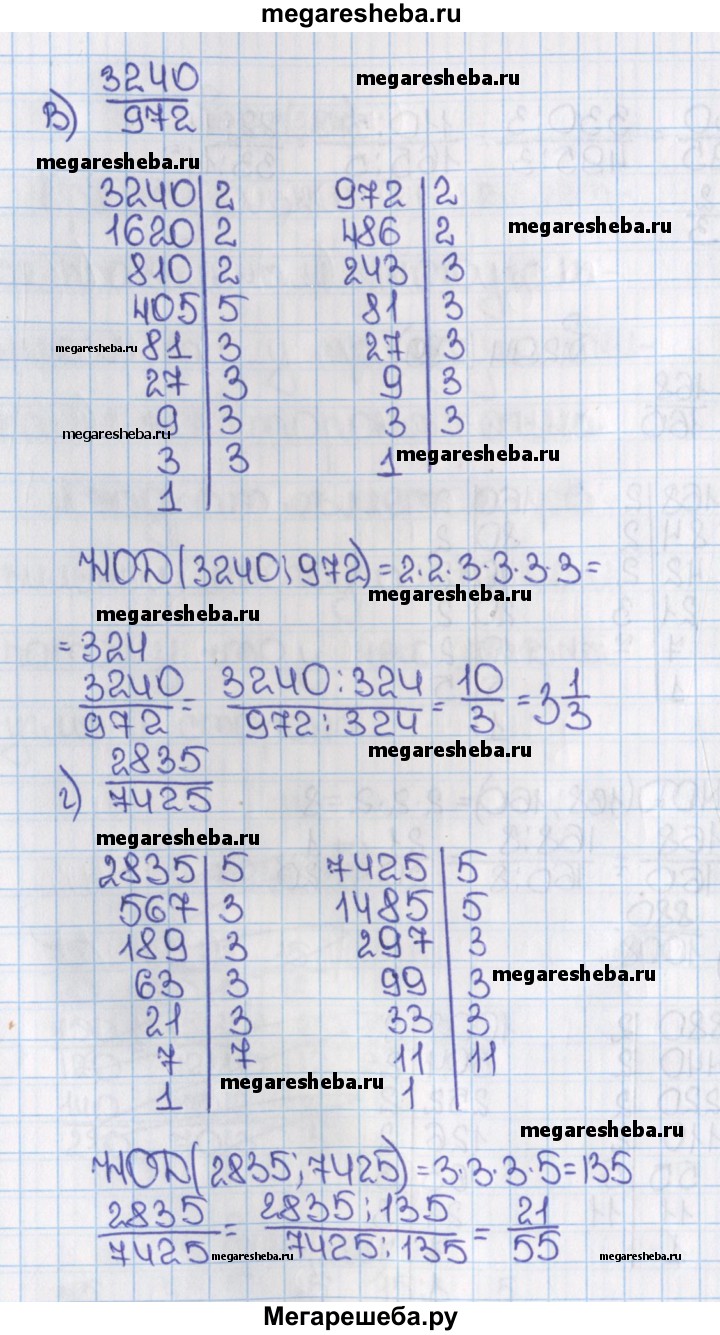 megaresheba.ru
в) 3240/972
megaresheba.ru
megaresheba.ru
3240 | 2   972 | 2
1620 | 2   486 | 2
megaresheba.ru
810 | 2   243 | 3
405 | 5   81 | 3
megaresheba.ru
81 | 3   27 | 3
27 | 3   9 | 3
9 | 3   3 | 3
megaresheba.ru
3 | 3   1
megaresheba.ru
1
НОД(3240; 972) = 2·2·3·3·3·3 =
megaresheba.ru
megaresheba.ru
= 324
3240/972 = 3240:324/972:324 = 10/3 = 3 1/3
megaresheba.ru
г) 2835/7425
megaresheba.ru
2835 | 5   7425 | 5
567 | 3   1485 | 5
189 | 3   297 | 3
63 | 3   99 | 3
megaresheba.ru
21 | 3   33 | 3
7 | 7   11 | 11
1   1
megaresheba.ru
megaresheba.ru
НОД(2835; 7425) = 3·3·3·5 = 135
2835/7425 = 2835:135/7425:135 = 21/55
megaresheba.ru
megaresheba.ru
Мегарешеба.ру